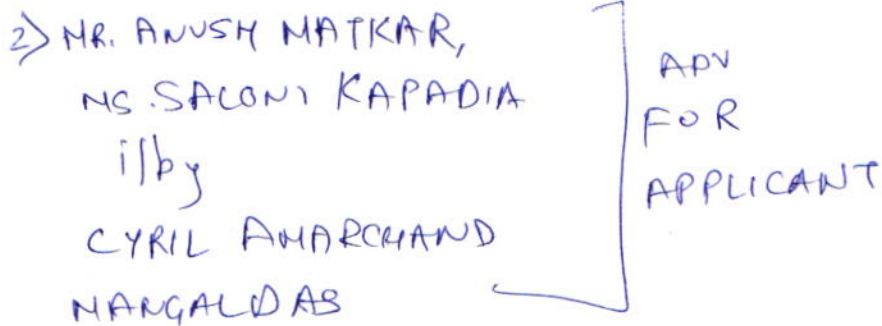 2) MR. ANUSH MATKAR,
MS. SALONI KAPADIA
i/by
CYRIL AMARCHAND
MANGALDAS
ADV
FOR
APPLICANT